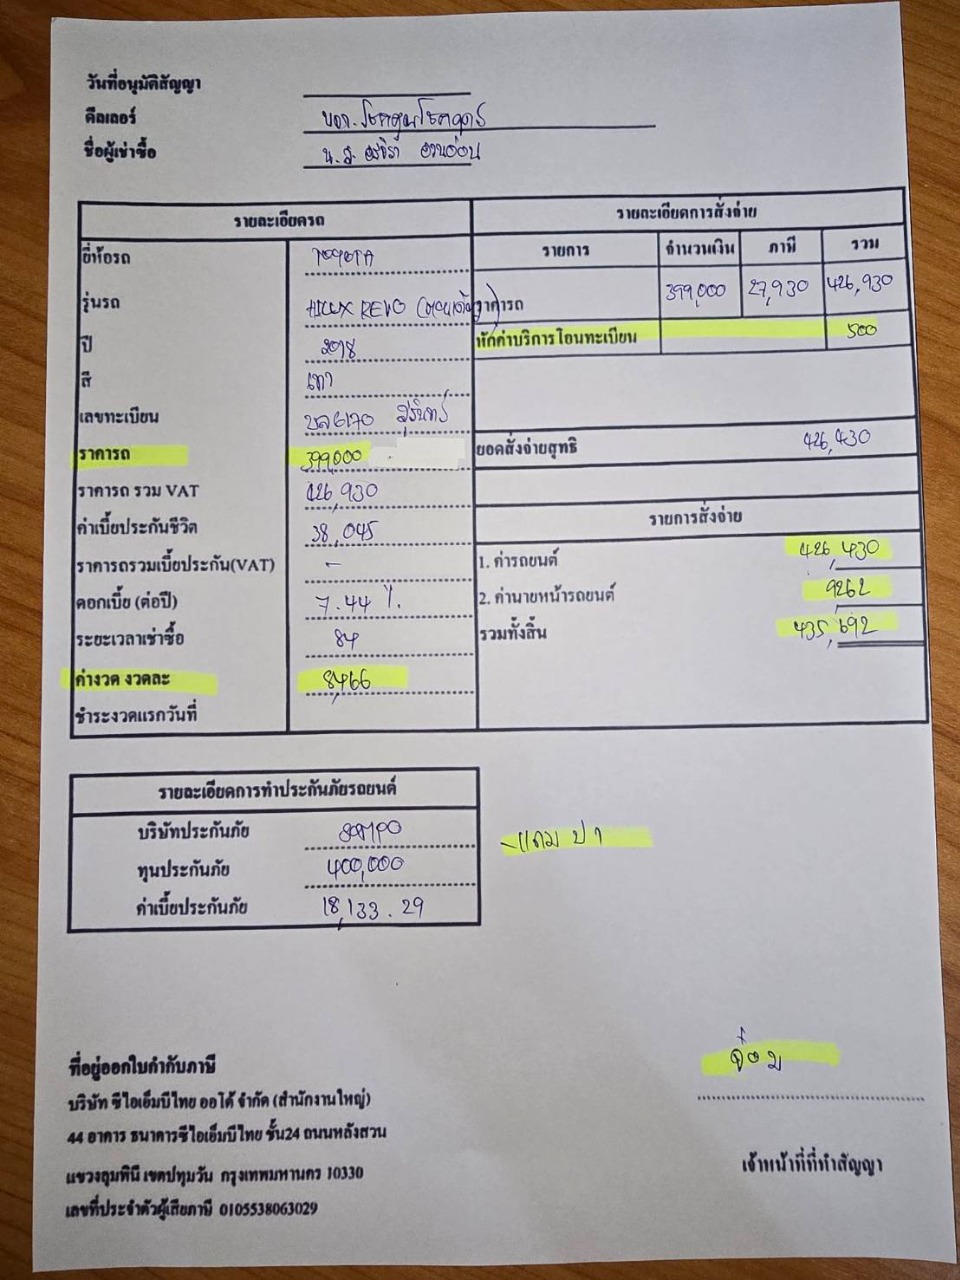 วันที่อนุมัติสัญญา
ดีลเลอร์ บจก.โชคคูณโชคฤดร์
ชื่อผู้เช่าซื้อ น.ส. อรจิรา อ่อน
รายละเอียดรถ
ยี่ห้อรถ TOYOTA
รุ่นรถ HILUX REVO
ปี 2018
สี เทา
เลขทะเบียน บล6170 สุรินทร์
ราคารถ 399,000
ราคารถ รวม VAT 426,930
ค่าเบี้ยประกันชีวิต 38,045
ราคารถรวมเบี้ยประกัน(VAT) -
ดอกเบี้ย (ต่อปี) 7.44 %.
ระยะเวลาเช่าซื้อ 84
ค่างวด งวดละ 8,466
ชำระงวดแรกวันที่
รายละเอียดการสั่งจ่าย
รายการ จำนวนเงิน ภาษี รวม
ราคารถ 399,000 27,930 426,930
หักค่าบริการโอนทะเบียน 500
ยอดสั่งจ่ายสุทธิ 426,430
รายการสั่งจ่าย
1. ค่ารถยนต์ 426,430
2. ค่านายหน้ารถยนต์ 9262
รวมทั้งสิ้น 435,692
รายละเอียดการทำประกันภัยรถยนต์
บริษัทประกันภัย
ทุนประกันภัย 400,000
ค่าเบี้ยประกันภัย 18,133.29
-แถม ป1
ที่อยู่ออกใบกำกับภาษี
บริษัท ซีไอเอ็มบีไทย ออโต้ จำกัด (สำนักงานใหญ่)
44 อาคาร ธนาคารซีไอเอ็มบีไทย ชั้น24 ถนนหลังสวน
แขวงลุมพินี เขตปทุมวัน กรุงเทพมหานคร 10330
เลขที่ประจำตัวผู้เสียภาษี 0105538063029
เจ้าหน้าที่ที่ทำสัญญา